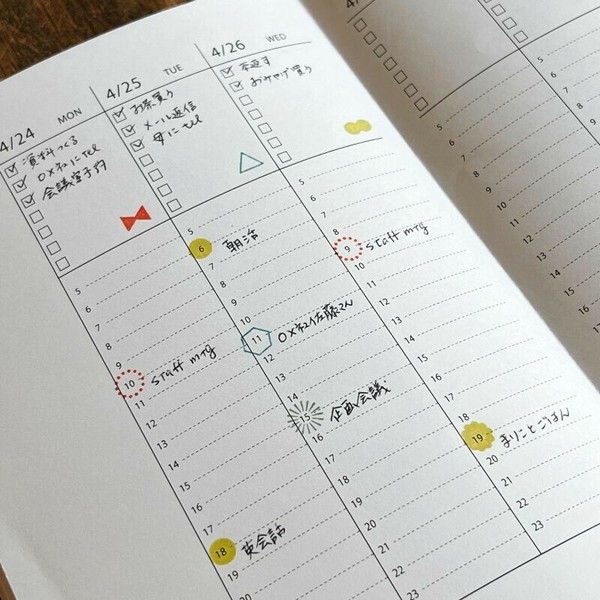 4/24 MON
資料つくる
○×社にtel
会議室予約
5
6
7
8
9
10 staff mtg
11
12
13
14
15
16
17
18 英会話
19
20
4/25 TUE
お茶買う
メール返信
母にtel
5
6 朝活
7
8
9
10
11 ○×社佐藤さん
12
13
14
15 企画会議
16
17
18
19
20
21
22
23
4/26 WED
本返す
おみやげ買う
5
6
7
8
9 staff mtg
10
11
12
13
14
15
16
17
18
19 まりことごはん
20
21
22
23
5
6
7
8
9
10
11
12
13
14
15
16
17